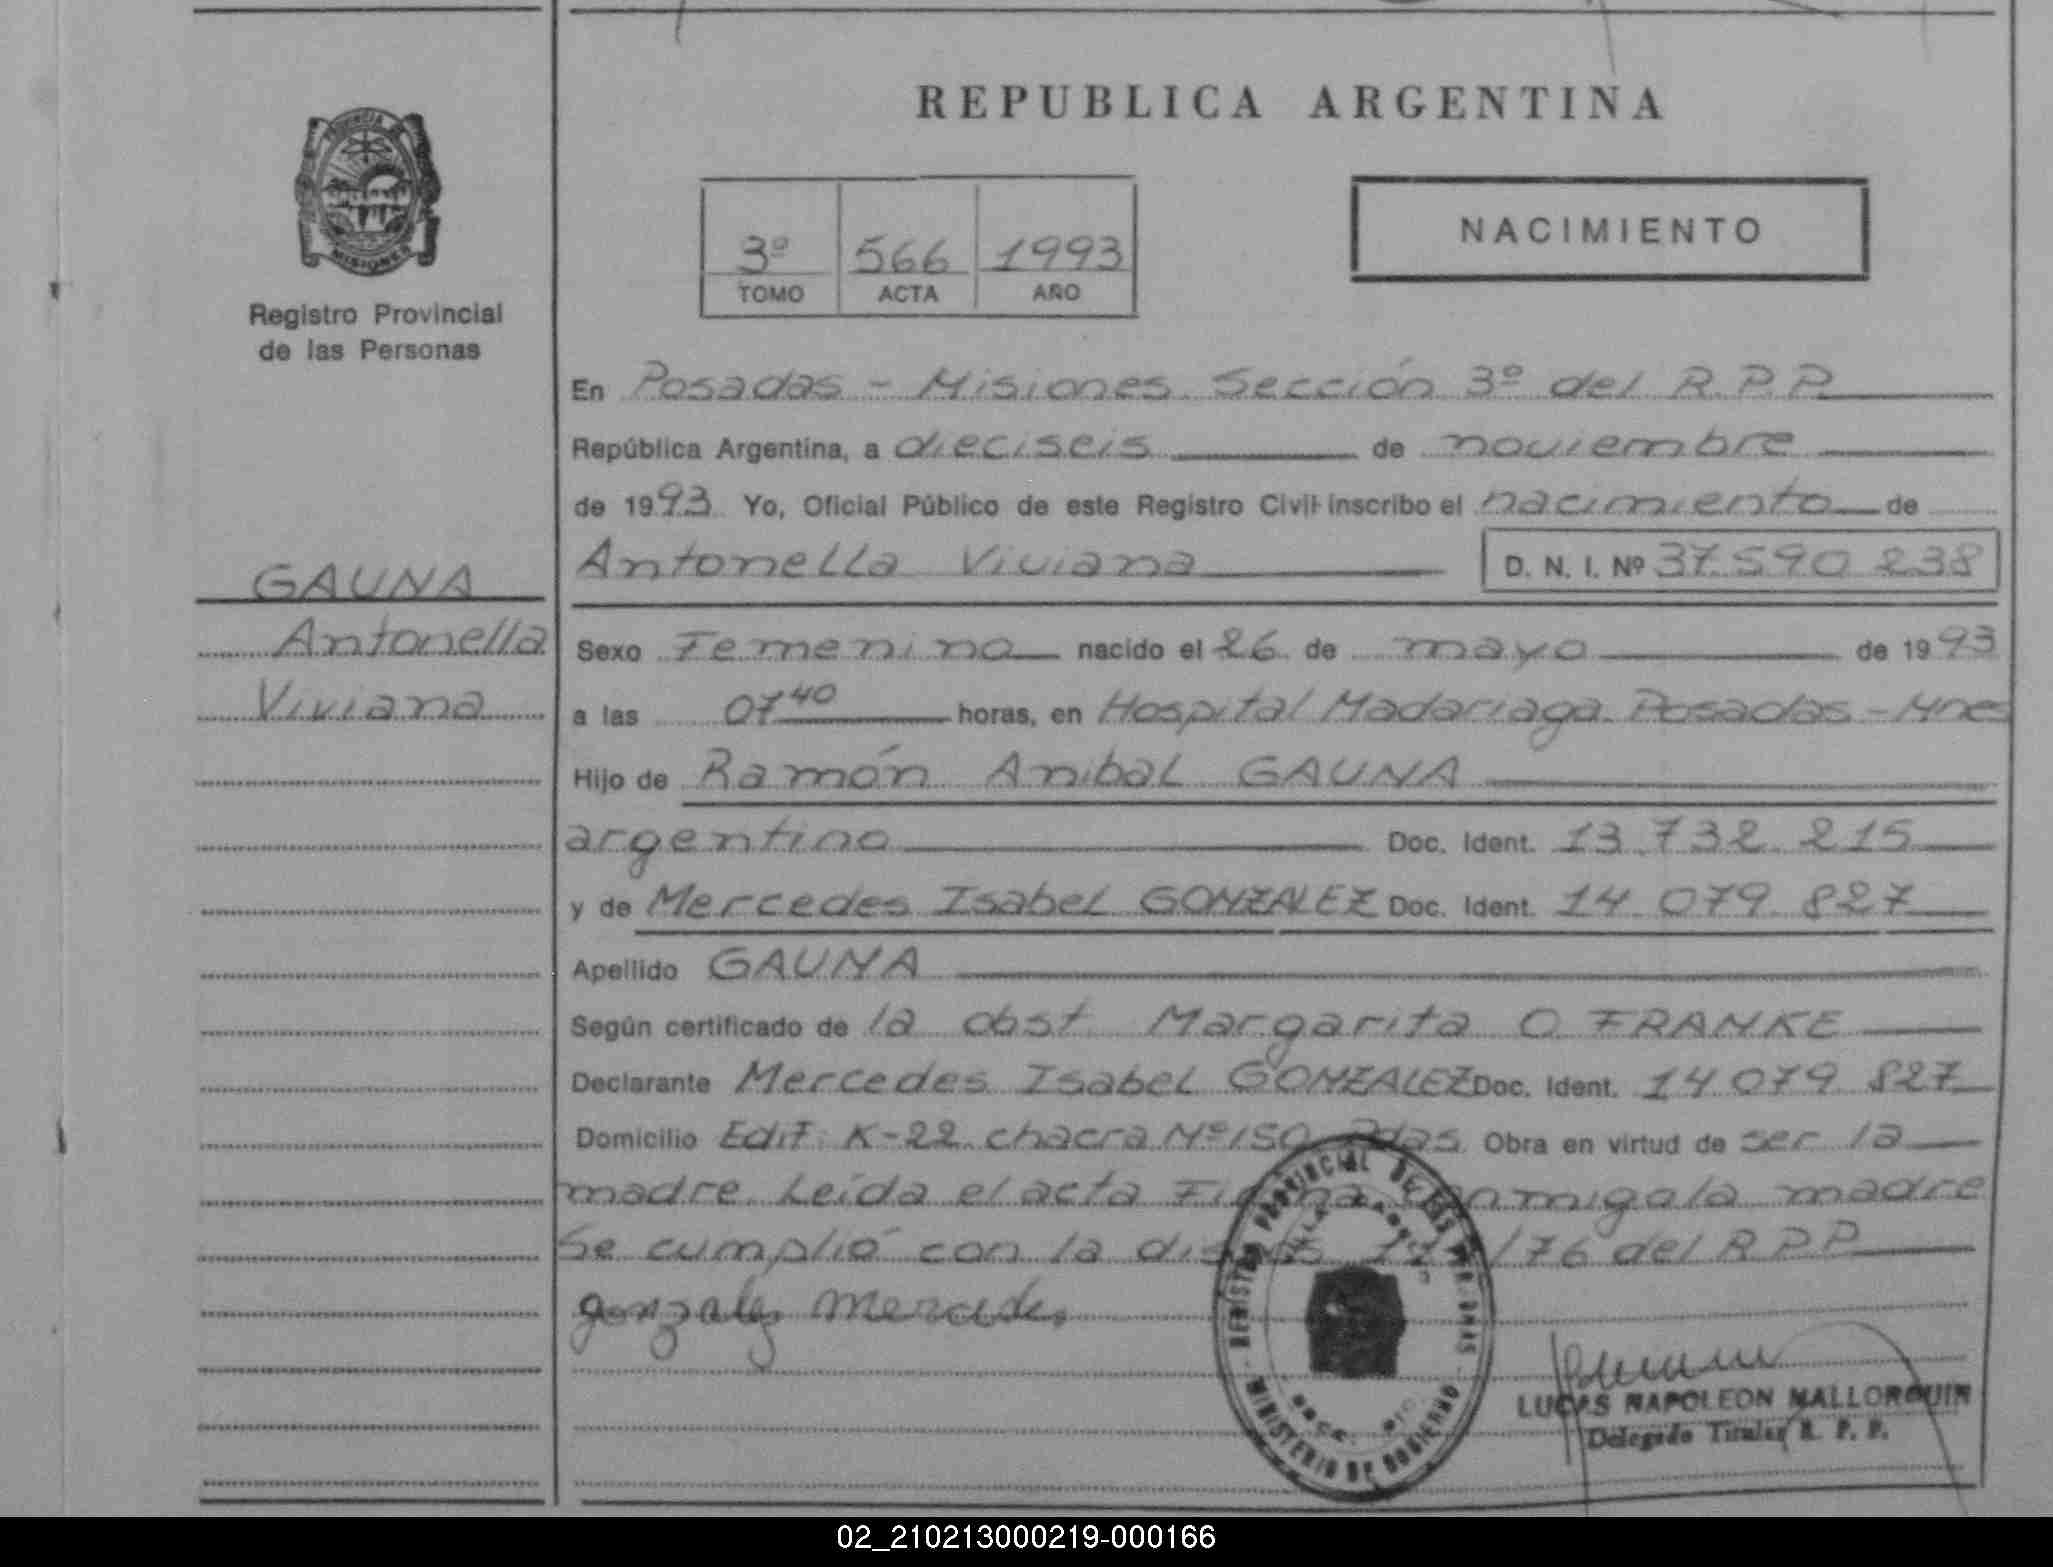 REPUBLICA ARGENTINA
PROVINCIA DE
MISIONES
Registro Provincial
de las Personas
3º 566 1993
TOMO ACTA AÑO
NACIMIENTO
En Posadas - Misiones. Sección 3º del R.P.P.
República Argentina, a dieciseis de noviembre
de 1993 Yo, Oficial Público de este Registro Civil inscribo el nacimiento de
Antonella Viviana D. N. I. Nº 37.590.238
GAUNA
Antonella
Viviana
Sexo Femenino nacido el 26 de mayo de 1993
a las 07 40 horas, en Hospital Madariaga. Posadas - Mnes
Hijo de Ramón Anibal GAUNA
argentino Doc. Ident. 13.732.215
y de Mercedes Isabel GONZALEZ Doc. Ident. 14.079.827
Apellido GAUNA
Según certificado de la obst. Margarita O. FRANKE
Declarante Mercedes Isabel GONZALEZ Doc. Ident. 14.079.827
Domicilio Edif. K-22 chacra Nº 150 Pdas. Obra en virtud de ser la
madre. Leída el acta Firma conmigo la madre
Se cumplió con la /76 del R.P.P.
gonzalez Mercedes
REGISTRO PROVINCIAL DE LAS PERSONAS
MINISTERIO DE GOBIERNO
LUCAS NAPOLEON MALLORQUIN
Delegado Titular R. P. P.
02_210213000219-000166